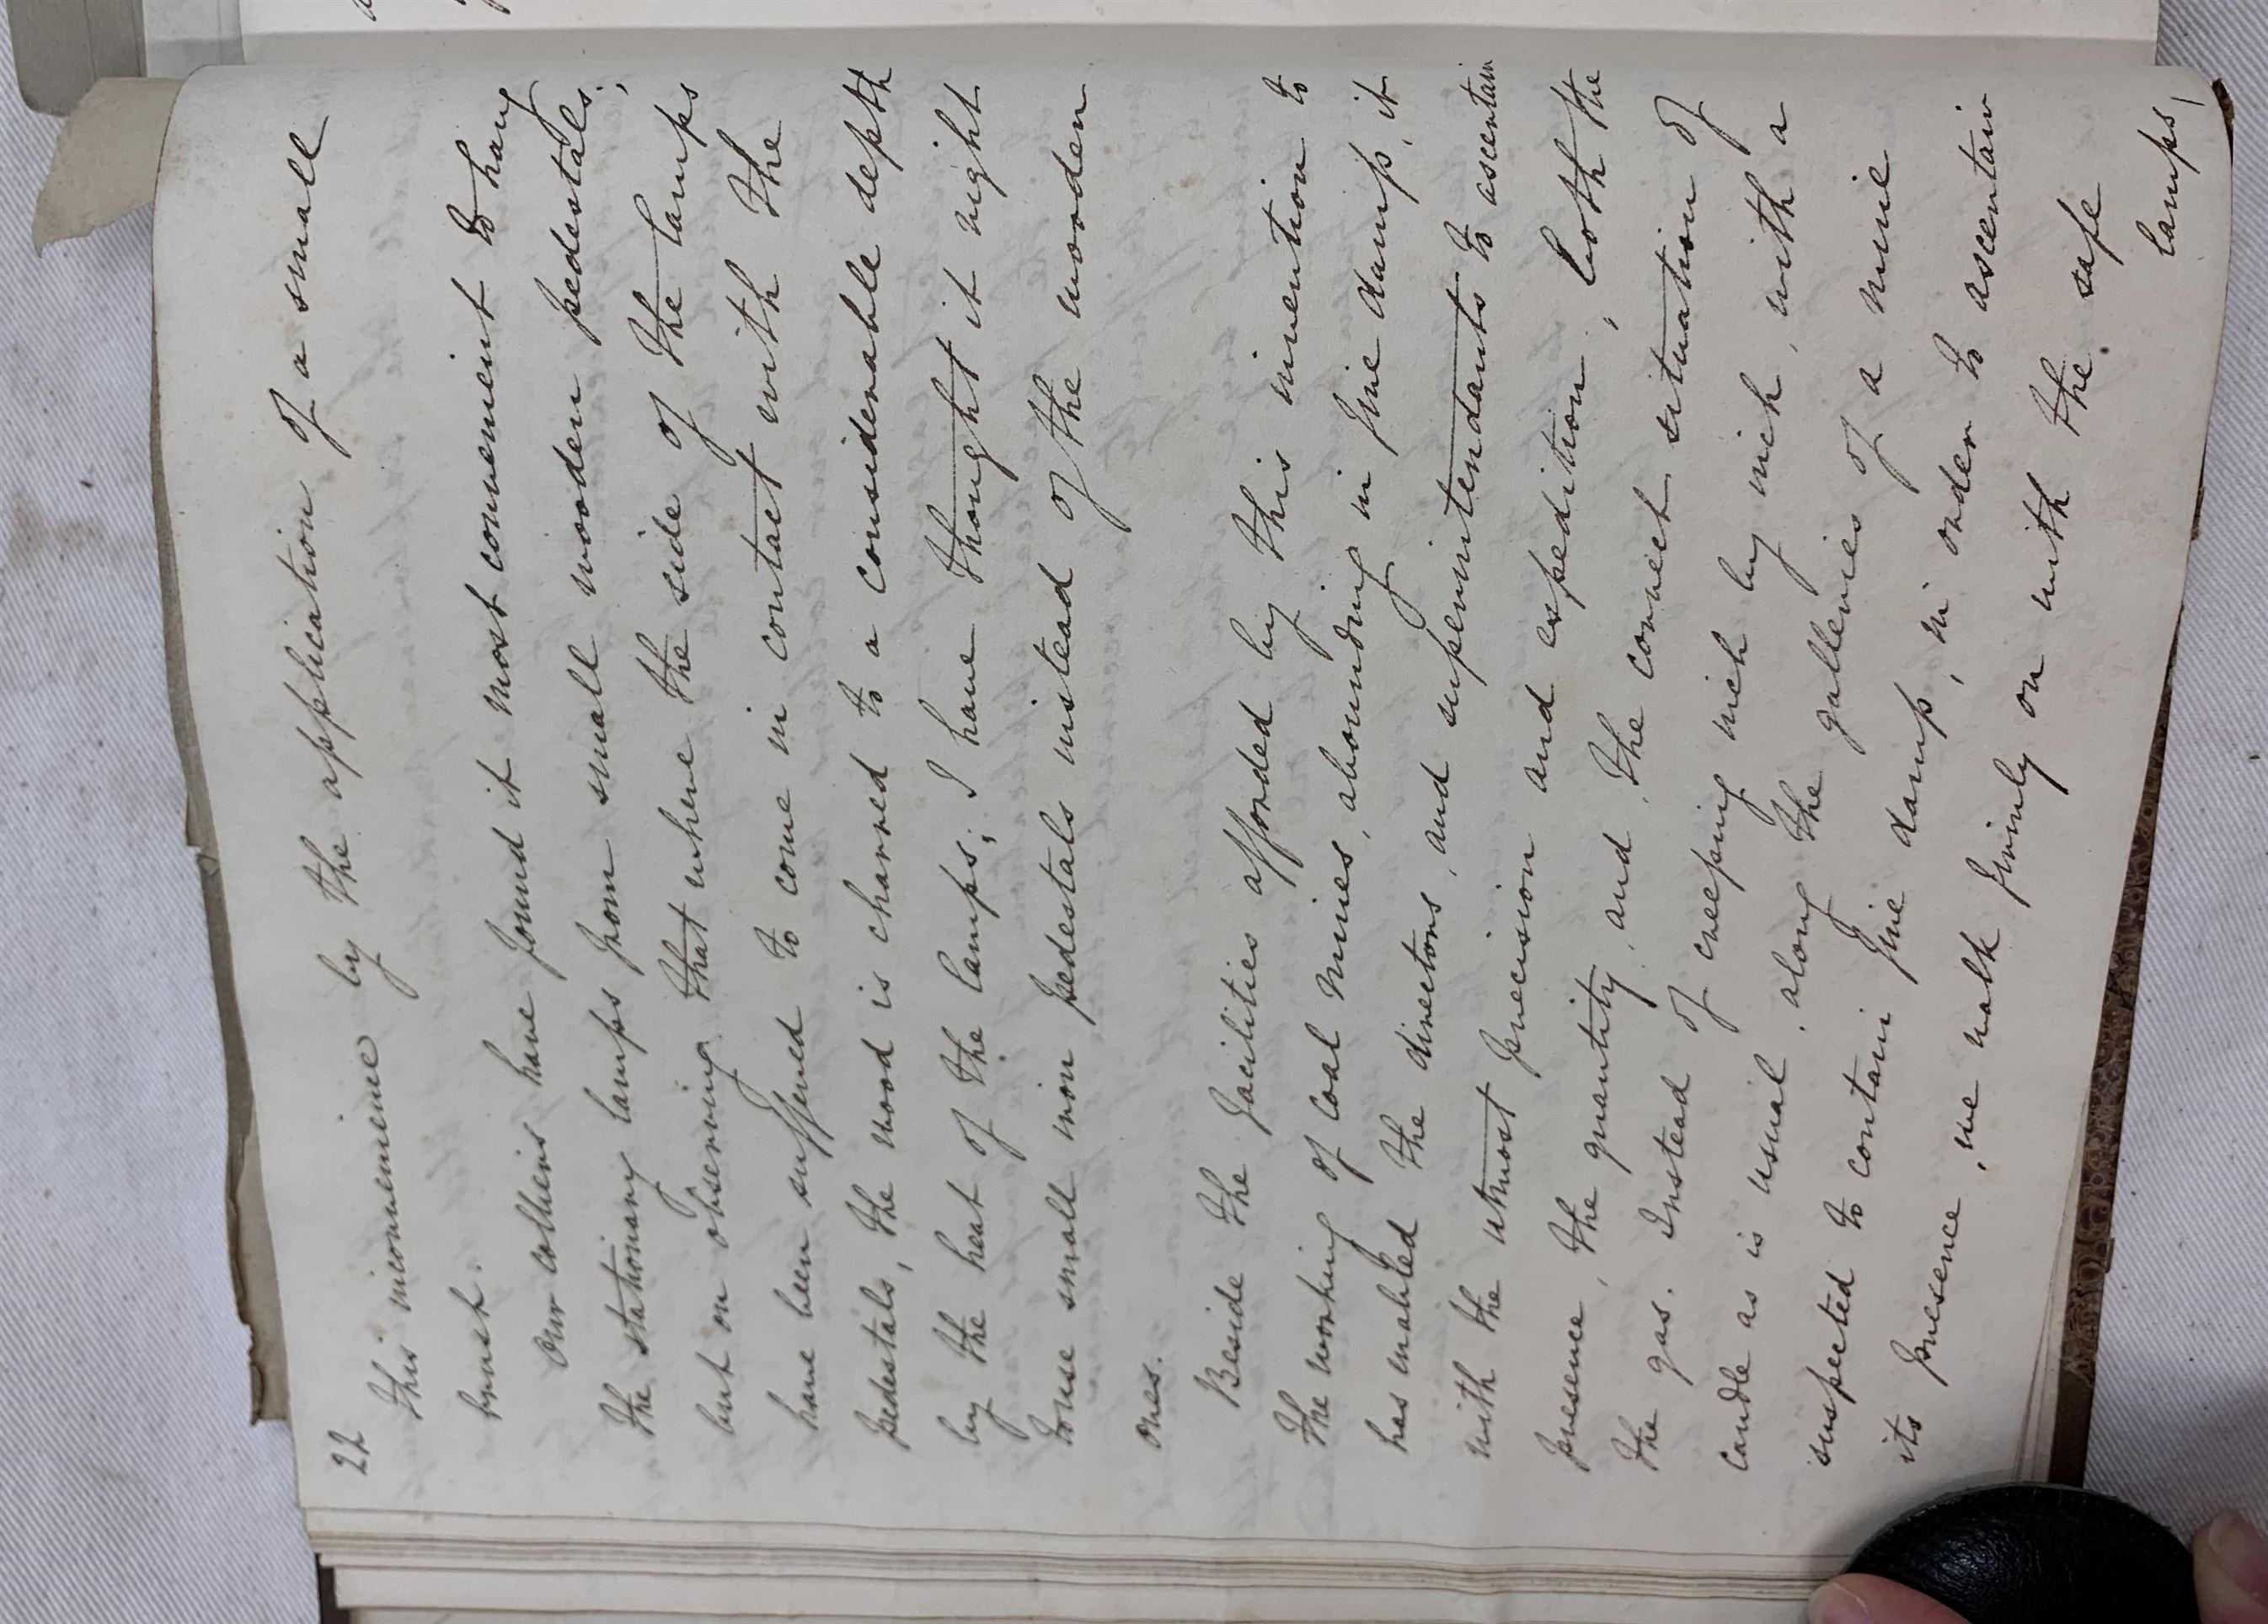 22
this inconvenience by the application of a small
brush.
Our colliers have found it most convenient to hang
the stationary lamps from small wooden pedestals;
but on observing that where the side of the lamps
have been suffered to come in contact with the
pedestals, the wood is charred to a considerable depth
by the heat of the lamps; I have thought it right
to use small iron pedestals instead of the wooden
ones.
Beside the facilities afforded by this invention to
the working of Coal Mines, abounding in fire damp, it
has enabled the directors, and superintendants to ascertain
with the utmost precision and expedition, both the
presence, the quantity, and, the correct situation of
the gas. Instead of creeping inch by inch, with a
candle as is usual, along the galleries of a mine
suspected to contain fire damp, in order to ascertain
its presence, we walk firmly on with the safe
lamps,